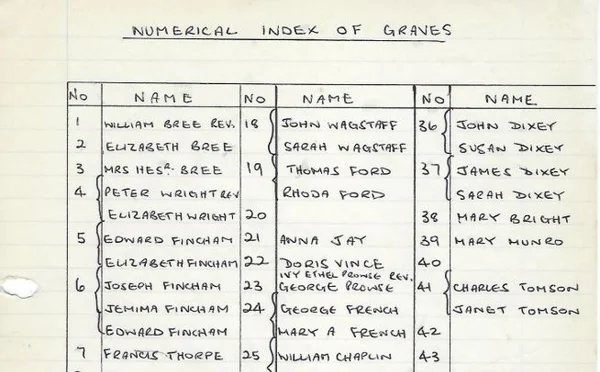 NUMERICAL INDEX OF GRAVES
No NAME No NAME No NAME
1 WILLIAM BREE REV. 18 JOHN WAGSTAFF 36 JOHN DIXEY
2 ELIZABETH BREE SARAH WAGSTAFF SUSAN DIXEY
3 MRS HESR. BREE 19 THOMAS FORD 37 JAMES DIXEY
4 PETER WRIGHT REV RHODA FORD SARAH DIXEY
ELIZABETH WRIGHT 20 38 MARY BRIGHT
5 EDWARD FINCHAM 21 ANNA JAY 39 MARY MUNRO
ELIZABETH FINCHAM 22 DORIS VINCE 40
IVY ETHEL PROWSE REV.
6 JOSEPH FINCHAM 23 GEORGE PROWSE 41 CHARLES TOMSON
JEMIMA FINCHAM 24 GEORGE FRENCH JANET TOMSON
EDWARD FINCHAM MARY A FRENCH 42
7 FRANCIS THORPE 25 WILLIAM CHAPLIN 43